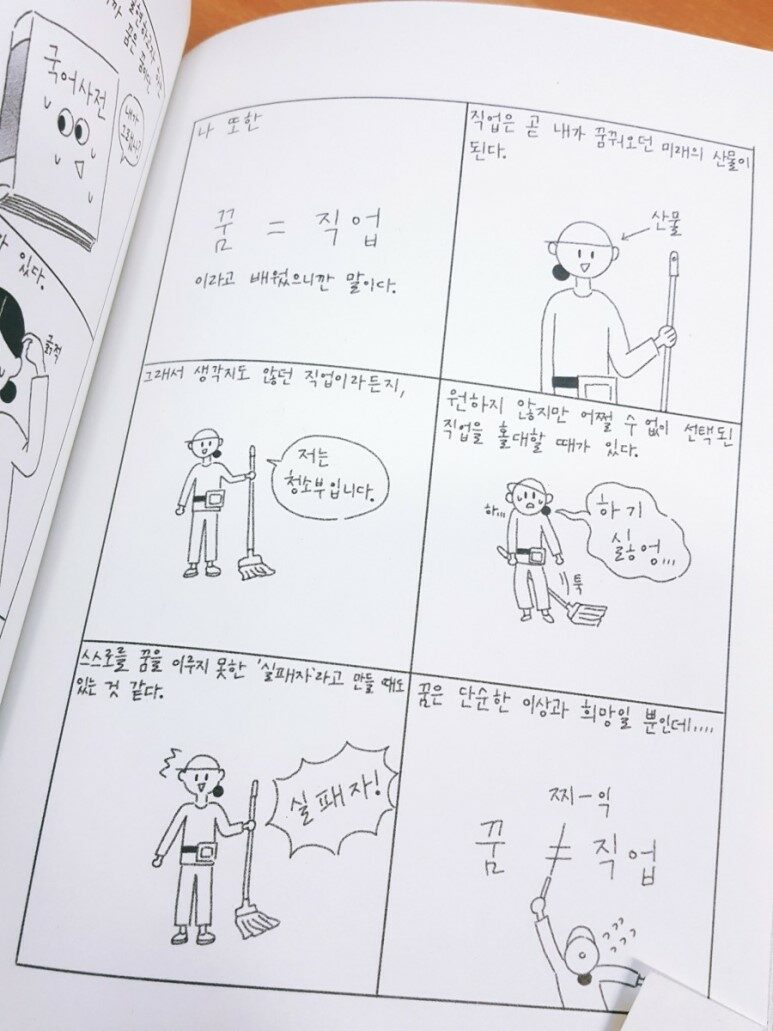 국어사전
내가
그랬나?
있다.
긁적
나 또한
꿈 = 직업
이라고 배웠으니깐 말이다.
직업은 곧 내가 꿈꿔오던 미래의 산물이
된다.
산물
그래서 생각지도 않던 직업이라든지,
저는
청소부입니다.
원하지 않지만 어쩔 수 없이 선택된
직업을 홀대할 때가 있다.
하...
하기
싫엉...
툭
스스로를 꿈을 이루지 못한 '실패자'라고 만들 때도
있는 것 같다.
실패자!
꿈은 단순한 이상과 희망일 뿐인데....
찌-익
꿈 ≠ 직업